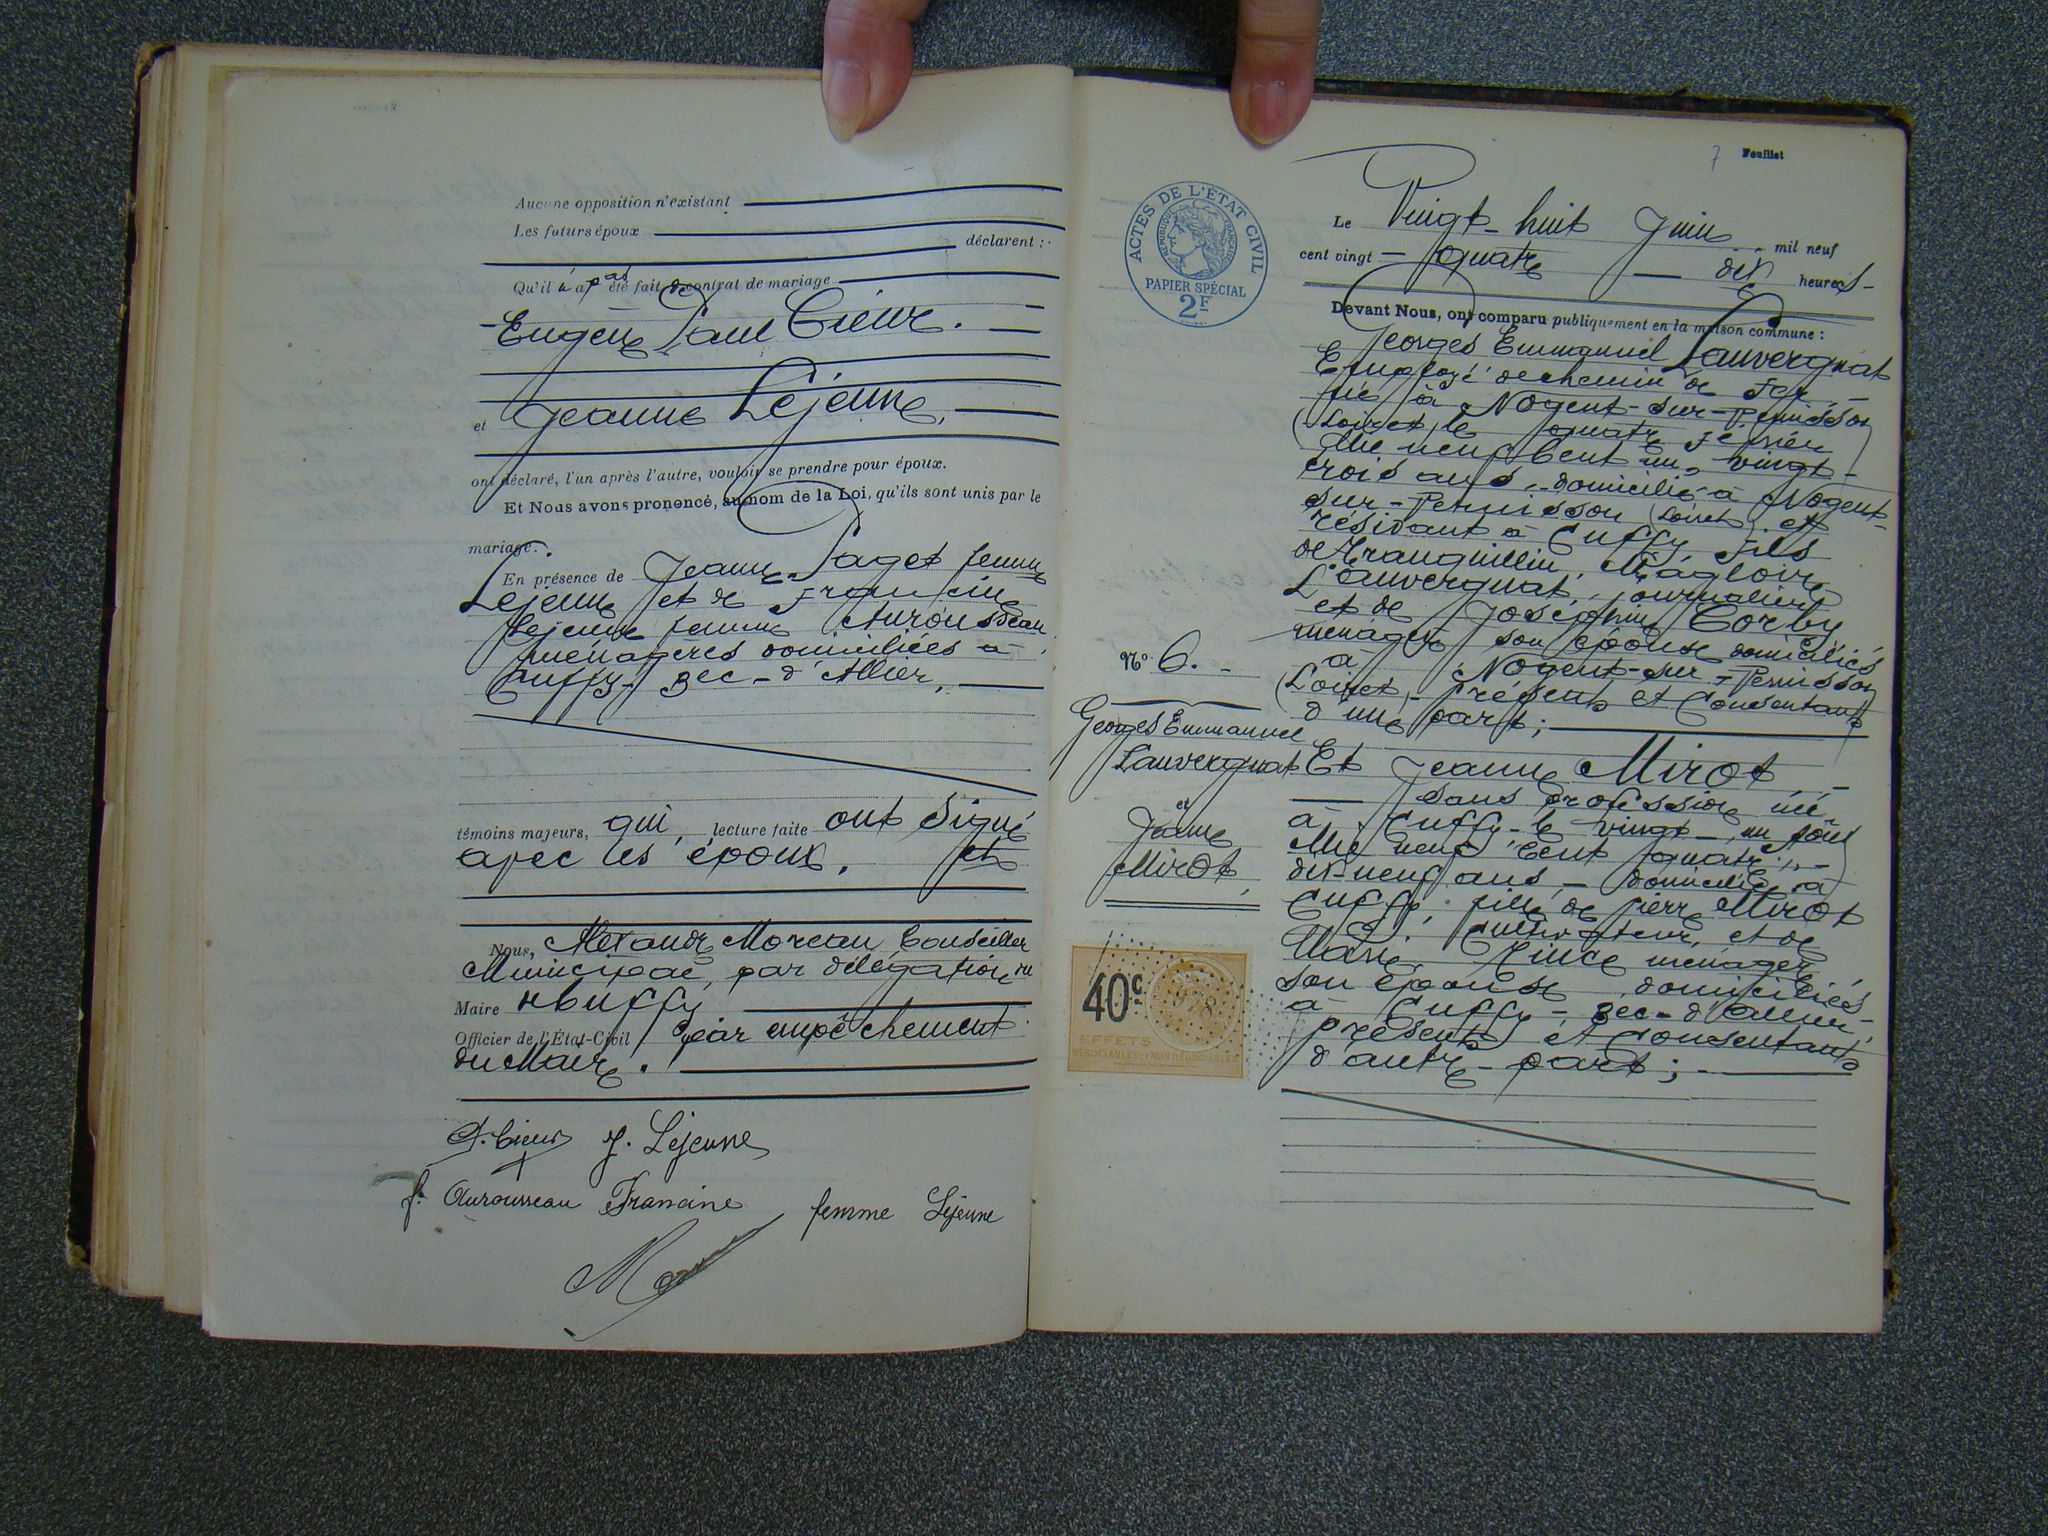 Aucune opposition n'existant
Les futurs époux
déclarent :
Qu'il n'a pas été fait de contrat de mariage
Eugène Paul Cieur.
et Jeanne Lejeune,
ont déclaré, l'un après l'autre, vouloir se prendre pour époux.
Et Nous avons prononcé, au nom de la Loi, qu'ils sont unis par le
mariage.
En présence de Jeanne Paget femme
Lejeune et de Francine
Lejeune femme Aurousseau
ménagères domiciliées à
Cuffy-Bec-d'Allier,
témoins majeurs, qui, lecture faite ont signé
avec les époux. et
Nous, Alexandre Moreau, Conseiller
Municipal, par délégation
Maire de Cuffy
Officier de l'État-Civil par empêchement
du Maire.
Cieur J. Lejeune
f. Aurousseau Francine femme Lejeune
7 Feuillet
ACTES DE L'ÉTAT CIVIL
RÉPUBLIQUE FRANÇAISE
PAPIER SPÉCIAL
2F
Le Vingt-huit Juin mil neuf
cent vingt-quatre — dix heures
Devant Nous, ont comparu publiquement en la maison commune :
Georges Emmanuel Lauvergnat
Employé de chemin de Fer
né à Nogent-sur-Vernisson
(Loiret) le quatre Février
Mil neuf Cent un, vingt-
trois ans, domicilié à Nogent-
sur-Vernisson (Loiret) et
résidant à Cuffy, fils
de Tranquillin, Magloire
Lauvergnat, journalier
et de Joséphine Corby
ménagère son épouse domiciliés
à Nogent-sur-Vernisson
(Loiret), présents et Consentants
d'une part ;
Et Jeanne Mirot
sans profession née
à Cuffy le vingt-un Août
Mil neuf Cent quatre,
dix-neuf ans, domiciliée à
Cuffy, fille de Pierre Mirot
Cultivateur, et de
Marie ménagère
son épouse domiciliés
à Cuffy-Bec-d'Allier,
présents et Consentants
d'autre part ;
N° 6.
Georges Emmanuel
Lauvergnat
et
Jeanne
Mirot,
40c
EFFETS
NÉGOCIABLES ET NON NÉGOCIABLES